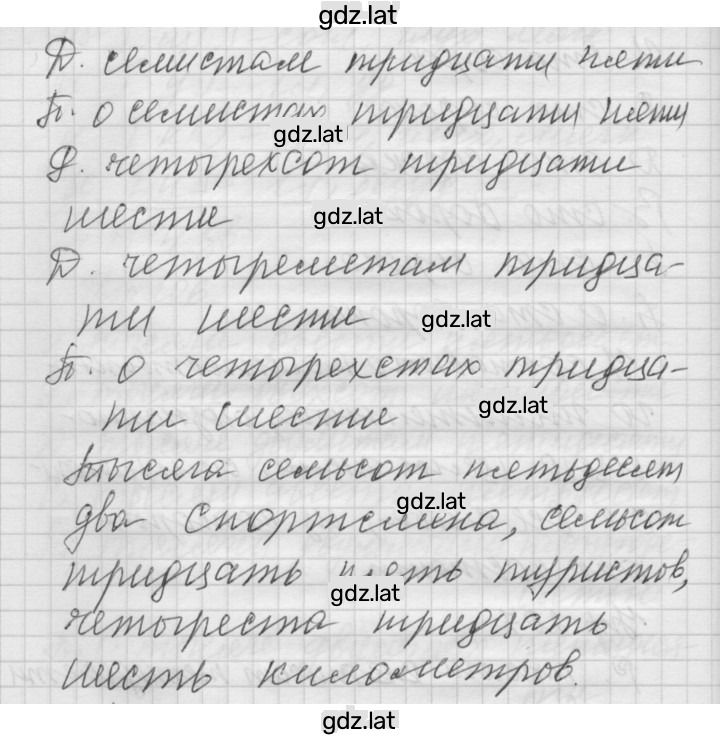 gdz.lat
Д. семистам тридцати пяти
П. о семистах тридцати пяти
gdz.lat
Р. четырехсот тридцати
шести gdz.lat
Д. четыремстам тридца-
ти шести gdz.lat
П. о четырехстах тридца-
ти шести gdz.lat
Тысяча семьсот пятьдесят
gdz.lat
два спортсмена, семьсот
тридцать пять туристов,
gdz.lat
четыреста тридцать
шесть километров.
gdz.lat